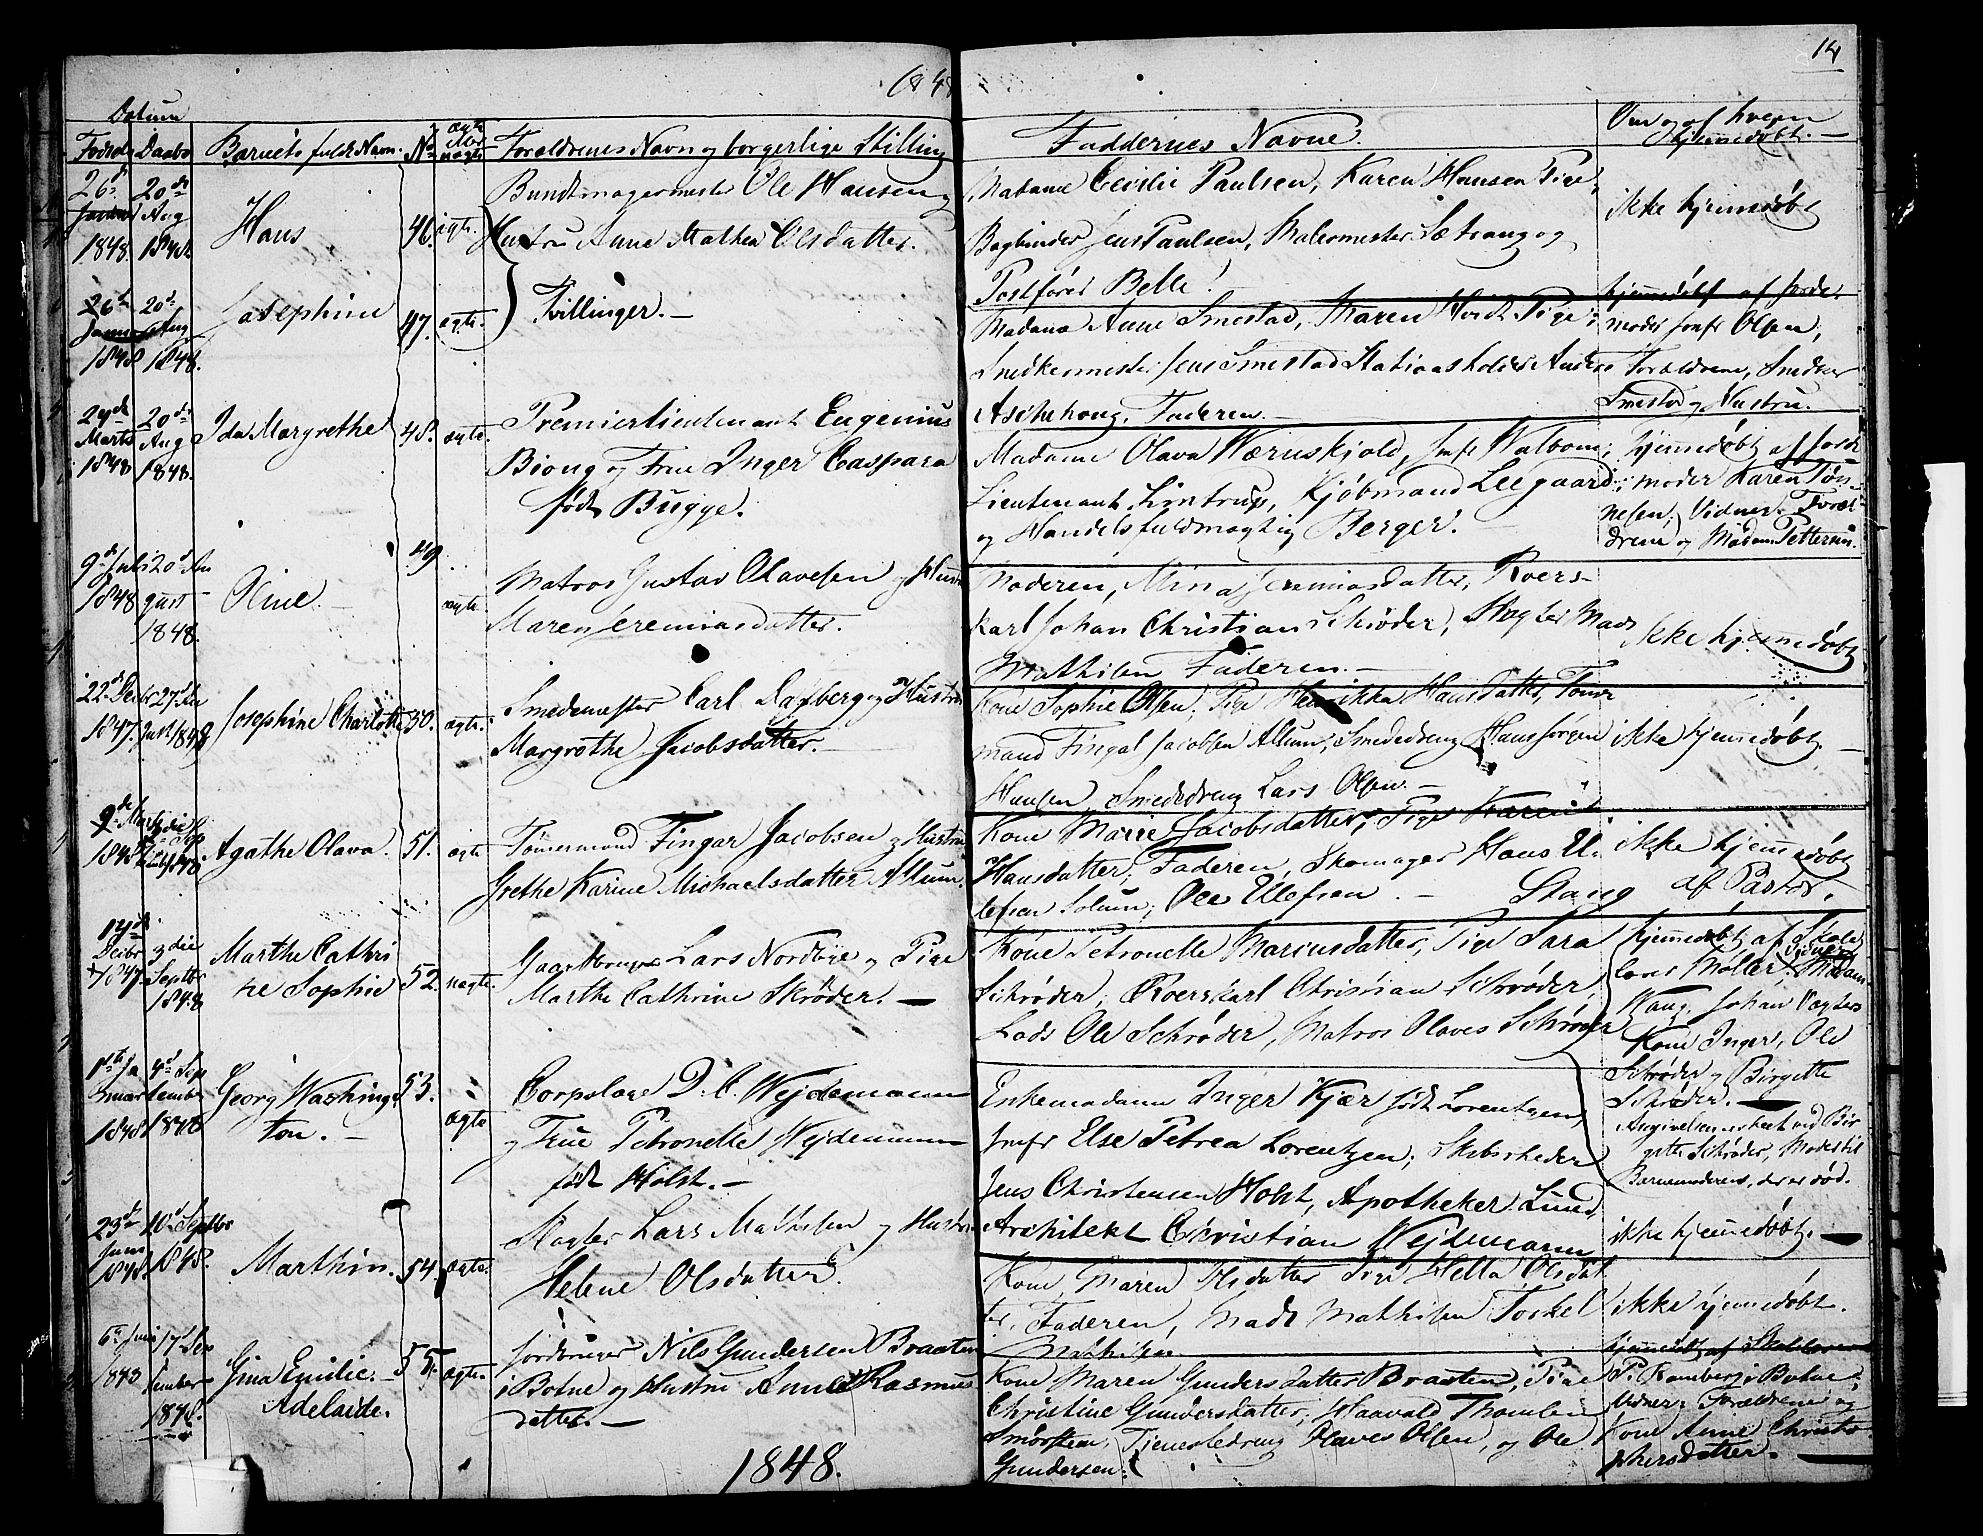 1848
14
Datum
Fødsel Daabs Barnets fulde Navn. No ægte eller uægte Forældrenes Navn og borgerlige Stilling
Faddernes Navne.
Om og af hvem hjemmedøbt.
26de Januar 1848. 20de Aug 1848
Hans
46. ægte.
Bundtmagermester Ole Hansen og
Hustru Anne Mathea Olsdatter.
Tvillinger.
Madame Cecilie Paulsen, Karen Hansen Pige,
Bogbinder Jens Paulsen, Malermester Sætrang og
Postfører Belle.
ikke hjemmedøbt
26d Januar 1848 20d Aug 1848.
Josephine
47. ægte.
Madame Anne Smestad, Maren Hvidt Pige,
Snedkermester Jens Smestad Stationsholder Anders
Aschehoug, Faderen.
hjemmedøbt af Jorde-
moder Jomfr Olsen,
Forældrene, Snedker
Smestad og Hustru.
24de Marts 1848 20de Aug 1848.
Ida Margrethe
48. ægte.
Premierlieutenant Eugenius
Biong og Frue Inger Caspara
født Bugge.
Madame Olava Wærnskjold, Jomfr Walbom;
Lieutenant Lintrup, Kjøbmand Leegaard;
og Handelsfuldmægtig Berger.
hjemmedøbt af Jorde
moder Karen Tøn-
nesen, Vidner: Foræl-
drene og Madam Pettersen.
9d Juli 1848 20d August 1848.
Oline.
49. ægte.
Matros Gustav Olavesen og Hustru
Maren Jeremiasdatter.
Moderen, Mina Jeremiasdatter, Roers-
karl Johan Christian Schrøder, Slagter Mads
Mathisen Faderen.
ikke hjemmedøbt
22d Decbr 1847. 27d August 1848
Josephine Charlotte
50. ægte.
Smedemester Carl Dagberg og Hustru
Margrethe Jacobsdatter.
Kone Sophie Olsen, Pige Henrikka Hansdatter, Tømr
mand Fingal Jacobsen Allum, Smededreng Hans Jørgen
Hansen, Smededreng Lars Olsen.
ikke hjemmedøbt.
9de Marts 1848 3die Septbr 1848
Agathe Olava.
51. ægte
Tømmermand Fingar Jacobsen og Hustru
Grethe Karine Michaelsdatter Allum.
Kone Marie Jacobsdatter, Pige Karen
Hansdatter, Faderen, Skomager Hans El-
lefsen Solum, Ole Ellefsen.
ikke hjemmedøbt
Stang af Pastor.
14de Decbr 1847. 3die Septbr 1848
Marthe Cathri
ne Sophie
52. uægte.
Gaardbruger Lars Nordbye og Pige
Marthe Cathrine Skrøder.
Kone Petronelle Mariusdatter, Pige Sara
Schrøder, Roerskarl Christian Schrøder,
Lods Ole Schrøder, Matros Olaves Schrøder
hjemmedøbt af Skole
lærer Møller, Vidner Madam
Wang, Johan Vægters
Kone Inger, Ole
Schrøder og Birgitte
Schrøder.
Angivelsen er skeet ved Bir
gitte Schrøder, Moder til
Barnemoderen, der er død.
1ste Januar 1848 4d September 1848
Georg Washing-
ton.
53. ægte
Corpslæge D. C. Wejdemann
og Frue Petronelle Wejdemann
født Holst.
Enkemadame Inger Kjær født Lorentzen,
Jomfr Else Petrea Lorentzen, Skibsrheder
Jens Christensen Holst, Apotheker Lund,
Architekt Christian Wejdemann
ikke hjemmedøbt.
23d Juni 1848. 10d Septbr 1848.
Marthin.
54. ægte.
Slagter Lars Mathisen og Hustru
Helene Olsdatter.
Kone Maren Olsdatter Pige Hella Olsdat
ter, Faderen, Mads Mathisen Torkel
Mathisen
ikke hjemmedøbt.
6te Juni 1848 17d September 1848.
Gina Emilie
Adelaide.
55. ægte.
Jordbruger Nils Gundersen Braaten
i Botne og Hustru Anne Rasmus
datter.
Kone Maren Gundersdatter Braaten, Pige
Christine Gundersdatter, Haavald Thomsen
Smørsteen, Tjenestedreng Olaves Olsen, og Ole
Gundersen.
hjemmedøbt af Skolelærer
P. Ramberg i Botne
Vidner: Forældrene og
Kone Anne Christo-
phersdatter.
1848.